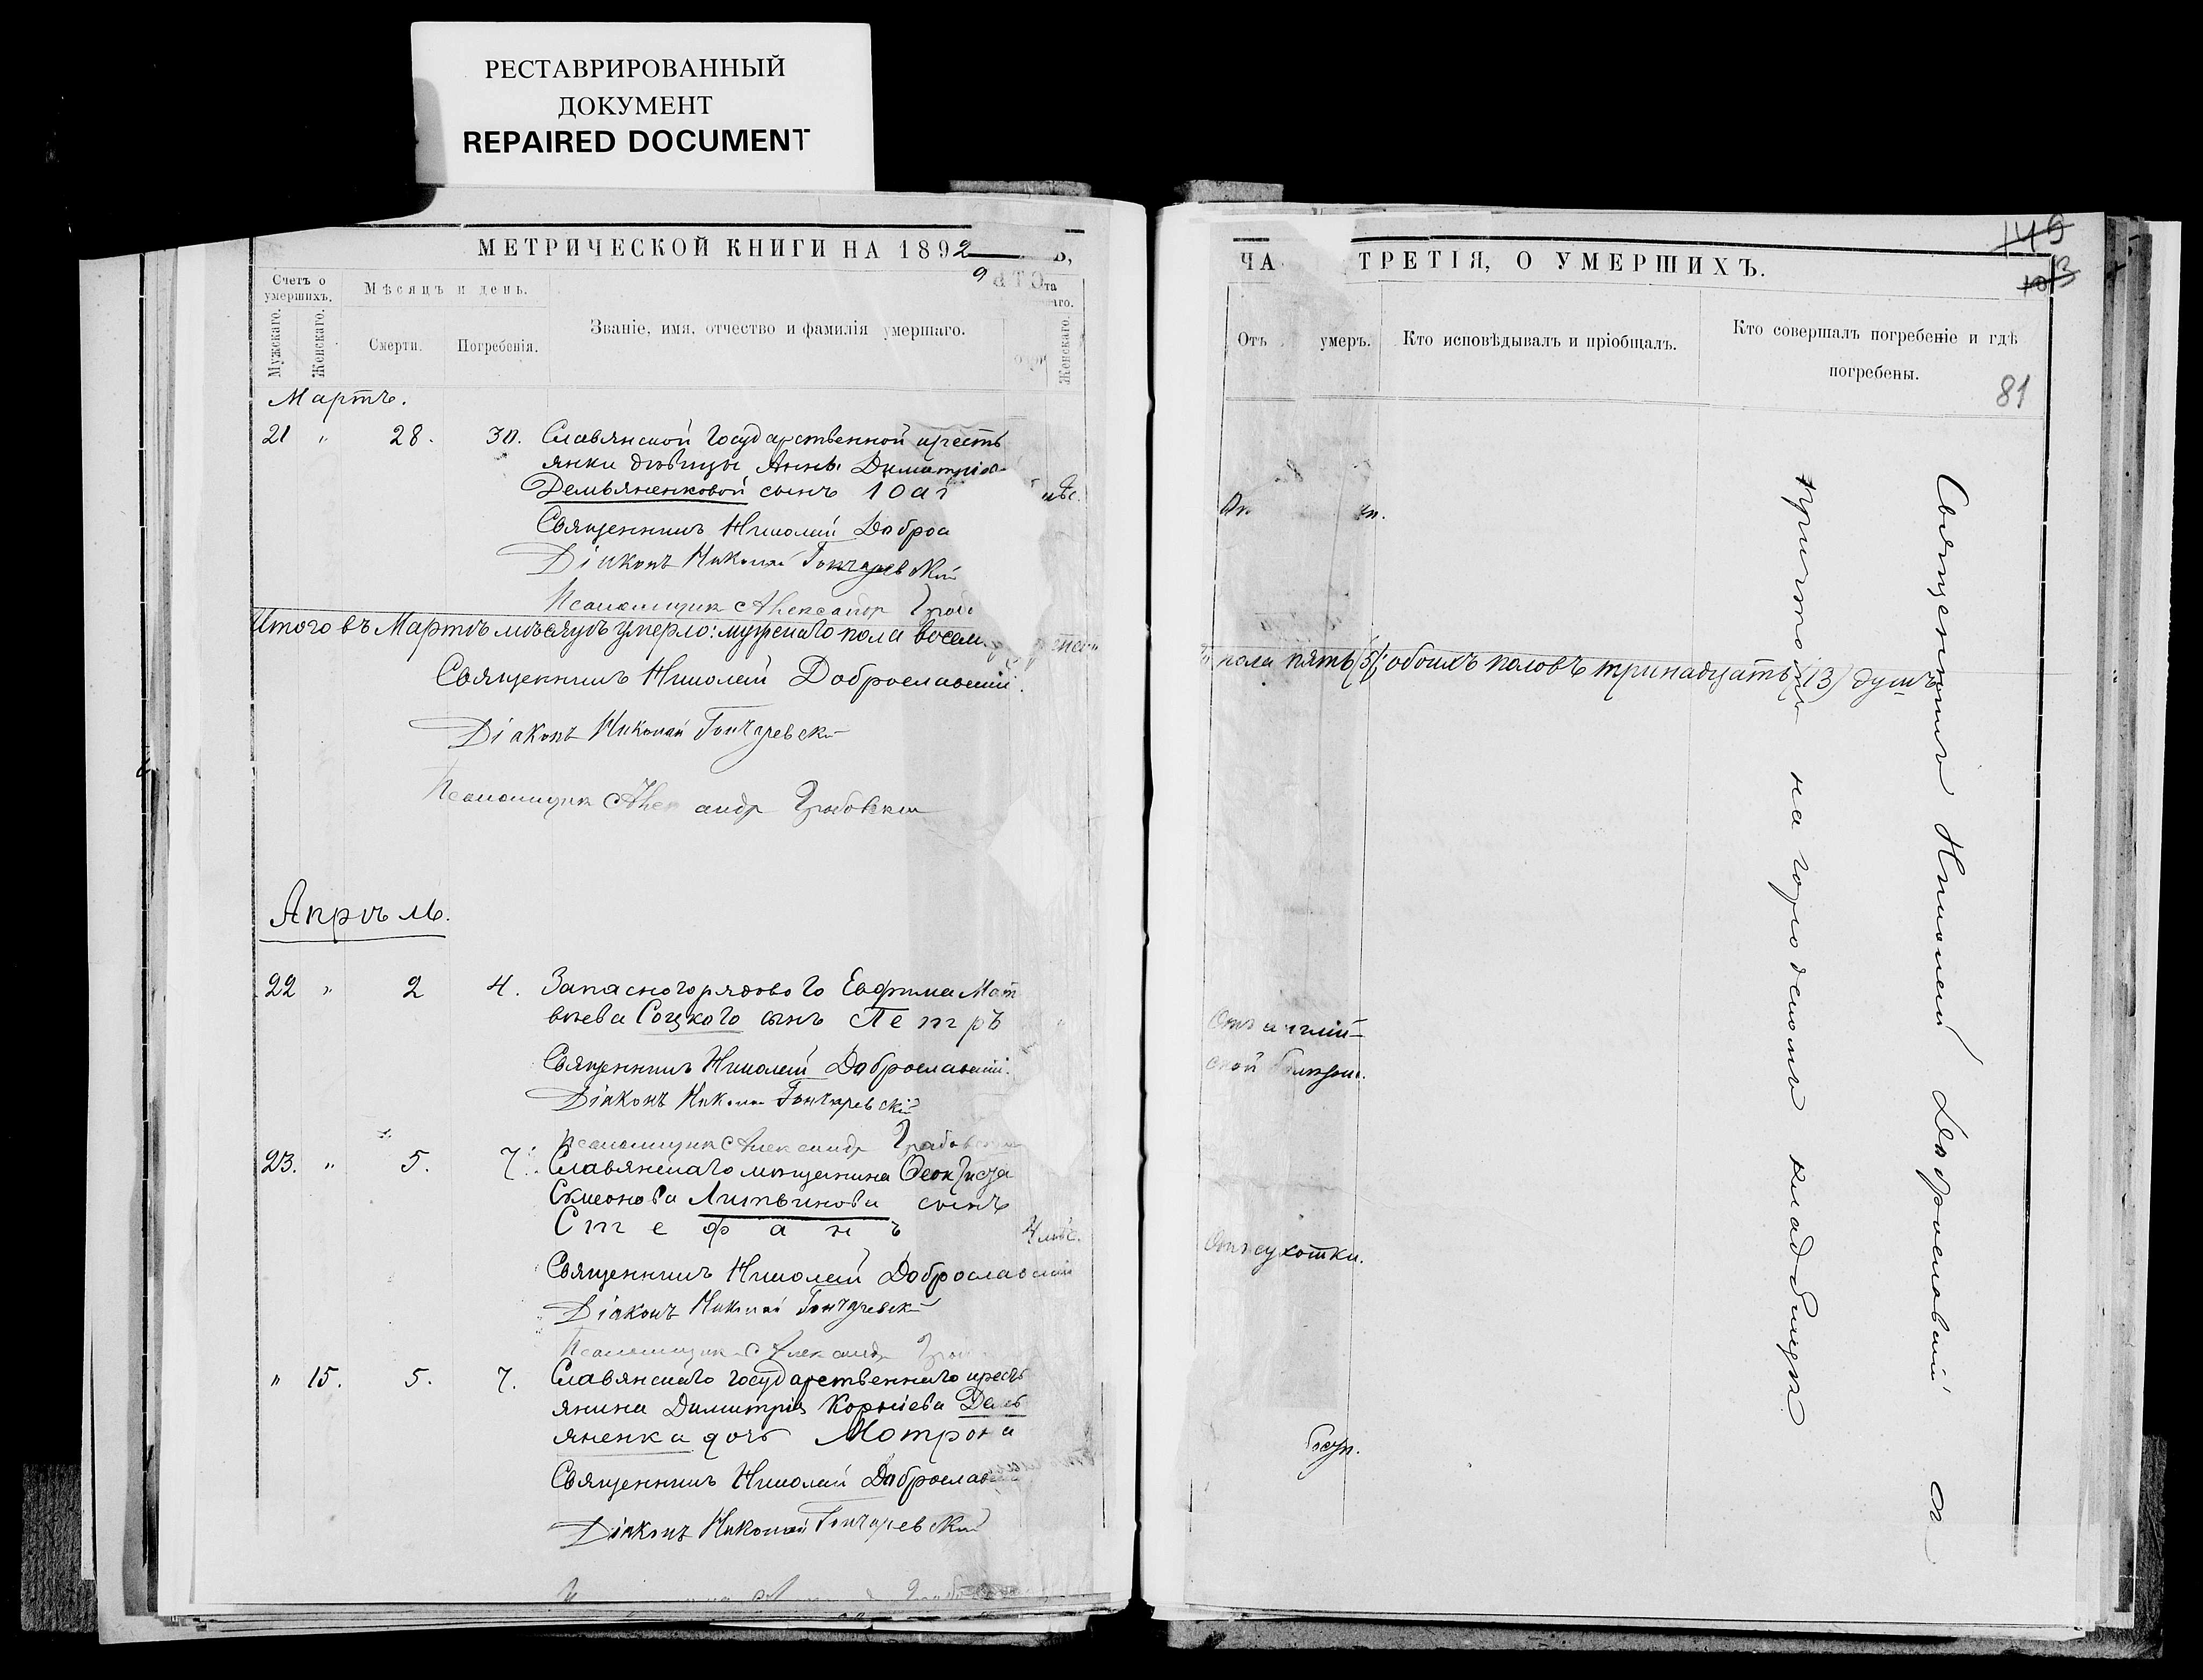 РЕСТАВРИРОВАННЫЙ
ДОКУМЕНТ
REPAIRED DOCUMENT
МЕТРИЧЕСКОЙ КНИГИ НА 1892
Счетъ о умершихъ.
Мѣсяцъ и день.
Мужскаго.
Женскаго.
Смерти.
Погребенія.
Званіе, имя, отчество и фамилія умершаго.
Женскаго.
Мартъ.
21 " 28. 30. Славянской Государственной кресть
янки дѣвицы Анны Димитріе
Демьяненковой сынъ Іоа
Священникъ Николай Доброс
Діаконъ Николай Гончаревскій
Псаломщик Александр Грабо
Итого въ Мартѣ мѣсяцѣ умерло: мужескаго пола восем
Священникъ Николай Доброславскій.
Діаконъ Николай Гончаревскій
Псаломщик Александр Грабовскій
Апрѣль.
22 " 2 4. Запасного рядового Евфима Мат
вѣева Соцкого сынъ Петръ
Священникъ Николай Доброславскій.
Діаконъ Николай Гончаревскій
Псаломщик Александр Грабовскій
23. " 5. 7. Славянскаго мѣщанина Феоктиста
Симеонова Литвинова сынъ
Стефанъ 4 мѣс.
Священникъ Николай Доброславскій
Діаконъ Николай Гончаревскій
Псаломщик Александр Гра
" 15. 5. 7. Славянскаго государственнаго крест
янина Димитрія Корнієва Демь
яненка дочь Мотрона
Священникъ Николай Доброслав
Діаконъ Николай Гончаревскій
149
103
ЧА ТРЕТІЯ, О УМЕРШИХЪ.
Отъ умеръ.
Кто исповѣдывалъ и пріобщалъ.
Кто совершалъ погребеніе и гдѣ погребены.
81
пола пять (5); обоихъ половъ тринадцать (13) душъ
Отъ англій-
ской болѣзни.
Отъ сухотки.
Священникъ Николай Доброславскій съ
причтомъ на городскомъ кладбищѣ